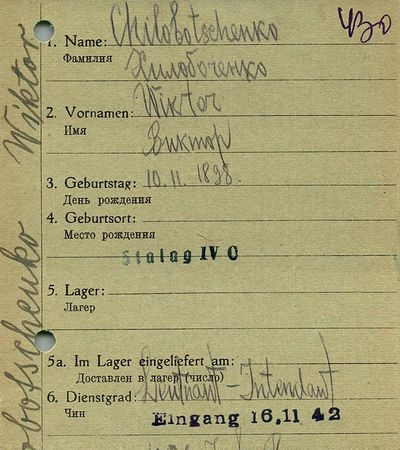 Wiktor
obotschenko
430
1. Name: Chilobotschenko
Фамилия Хилобоченко
2. Vornamen: Wiktor
Имя Виктор
3. Geburtstag: 10.11.1898.
День рождения
4. Geburtsort:
Место рождения
Stalag IV C
5. Lager:
Лагер
5a. Im Lager eingeliefert am:
Доставлен в лагер (число)
6. Dienstgrad: Leutnant-Intendant
Чин
Eingang 16.11 42